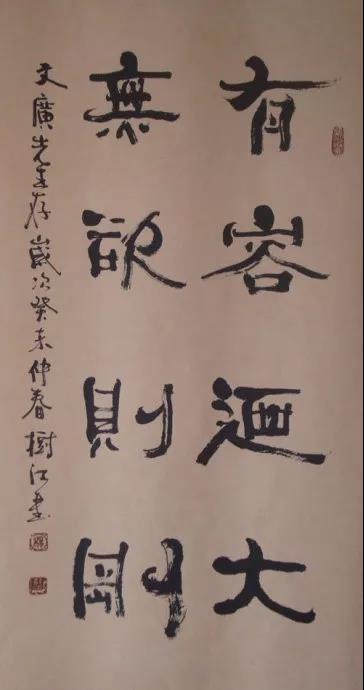 有容迺大
無欲則剛
文廣先生存歲次癸未仲春樹江書